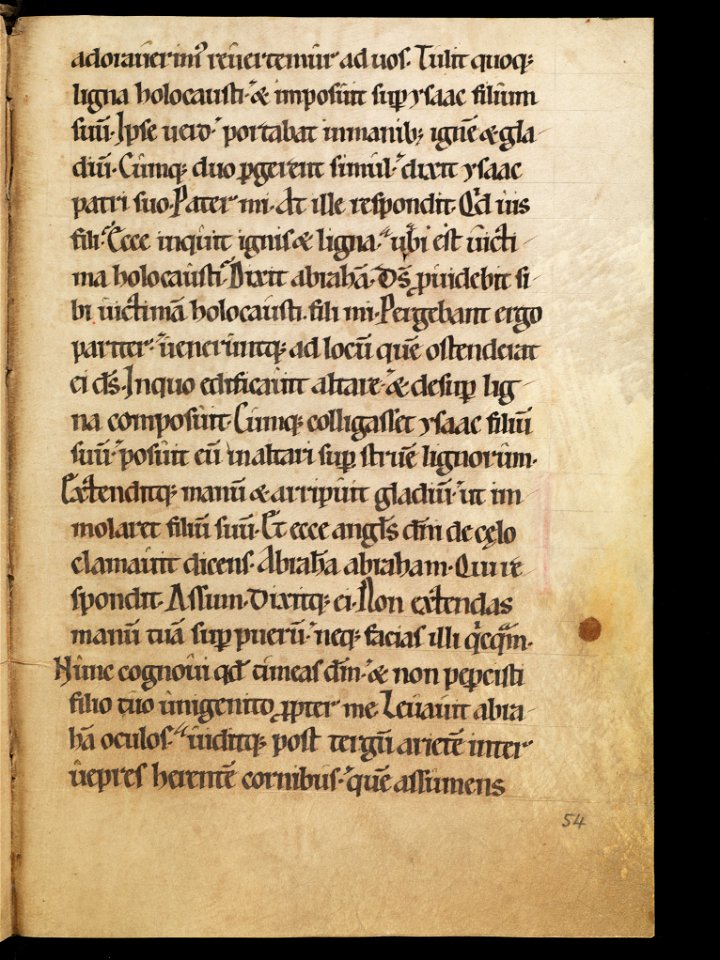 adorauerim᷒ reuertemur ad uos. Tulit quoq;
ligna holocausti. & imposuit sup̄ ysaac filium
suū. Ipse uero portabat in manib; ignē & gla-
diū. Cumq; duo ꝑgerent simul. dixit ysaac
patri suo. Pater mi. At ille respondit. Qd uis
fili. Ecce inquit ignis & ligna. ubi est uicti-
ma holocausti. Dixit abrahā. Ds̄ ꝓuidebit si-
bi uictimā holocausti. fili mi. Pergebant ergo
pariter. ueneruntq; ad locū quē ostenderat
ei ds̄. In quo edificauit altare. & desup̄ lig-
na composuit. Cumq; colligasset ysaac filiū
suū. posuit eū in altari sup̄ struē lignorum.
Extenditq; manū & arripuit gladiū. ut im-
molaret filiū suū. Et ecce angl̄s dn̄i de cęlo
clamauit dicens. Abrahā abraham. Qui re-
spondit. Assum. Dixitq; ei. Non extendas
manū tuā sup̄ puerū. neq; facias illi qͥcqͣm.
Nunc cognoui qd̄ timeas dn̄m. & non pepercisti
filio tuo unigenito ꝓpter me. Leuauit abra-
hā oculos. uiditq; post tergū arietē inter
uepres herentē cornibus. quē assumens
54